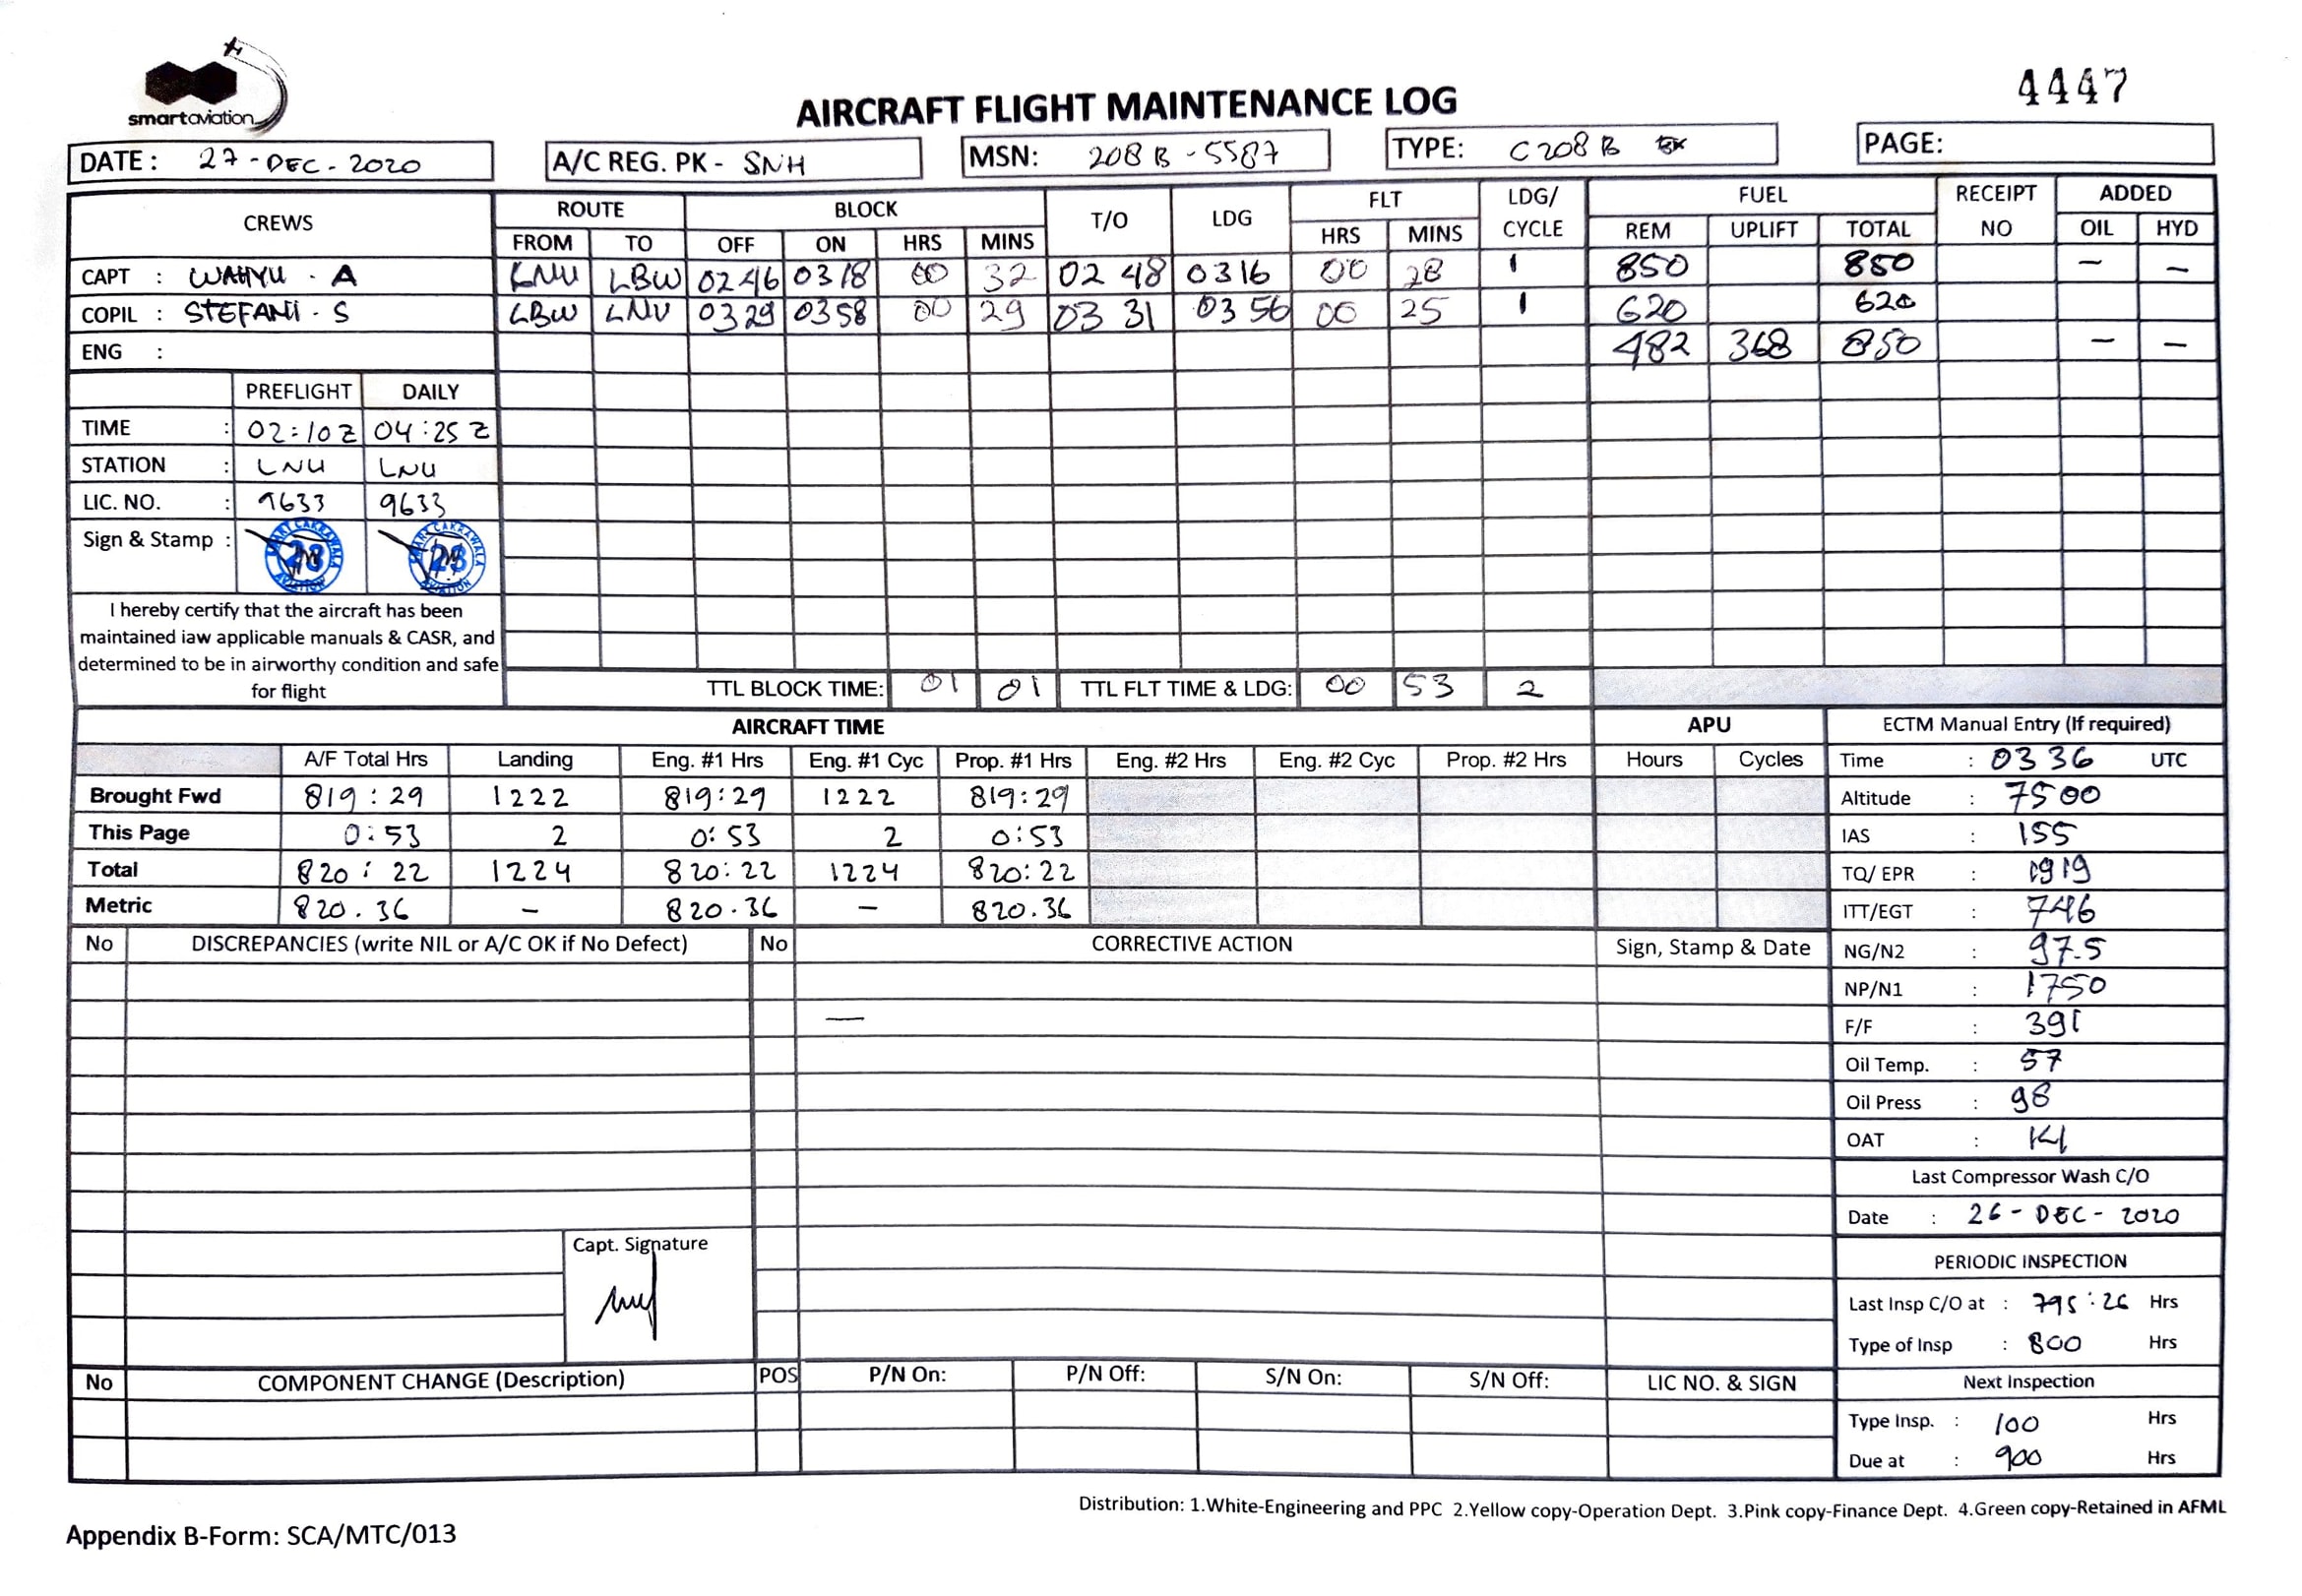 smartaviation
AIRCRAFT FLIGHT MAINTENANCE LOG
4447
DATE : 27-DEC-2020
A/C REG. PK - SNH
MSN: 208B-5587
TYPE: C208B EX
PAGE:
CREWS ROUTE BLOCK T/O LDG FLT LDG/ CYCLE FUEL RECEIPT NO ADDED
FROM TO OFF ON HRS MINS HRS MINS REM UPLIFT TOTAL OIL HYD
CAPT : WAHYU . A LNU LBW 0246 0318 00 32 02 48 0316 00 28 1 850 850 – –
COPIL : STEFANI . S LBW LNU 0329 0358 00 29 03 31 0356 00 25 1 620 620
ENG : 482 368 850 – –
PREFLIGHT DAILY
TIME : 02:10Z 04:25Z
STATION : LNU LNU
LIC. NO. : 9633 9633
Sign & Stamp :
I hereby certify that the aircraft has been
maintained iaw applicable manuals & CASR, and
determined to be in airworthy condition and safe
for flight
TTL BLOCK TIME: 01 01 TTL FLT TIME & LDG: 00 53 2
AIRCRAFT TIME APU
A/F Total Hrs Landing Eng. #1 Hrs Eng. #1 Cyc Prop. #1 Hrs Eng. #2 Hrs Eng. #2 Cyc Prop. #2 Hrs Hours Cycles
Brought Fwd 819:29 1222 819:29 1222 819:29
This Page 0:53 2 0:53 2 0:53
Total 820:22 1224 820:22 1224 820:22
Metric 820.36 – 820.36 – 820.36
ECTM Manual Entry (If required)
Time : 0336 UTC
Altitude : 7500
IAS : 155
TQ/ EPR : 1919
ITT/EGT : 746
NG/N2 : 97.5
NP/N1 : 1750
F/F : 391
Oil Temp. : 57
Oil Press : 98
OAT : 14
Last Compressor Wash C/O
Date : 26-DEC-2020
PERIODIC INSPECTION
Last Insp C/O at : 795:26 Hrs
Type of Insp : 800 Hrs
Next Inspection
Type Insp. : 100 Hrs
Due at : 900 Hrs
No DISCREPANCIES (write NIL or A/C OK if No Defect) No CORRECTIVE ACTION Sign, Stamp & Date
—
Capt. Signature
No COMPONENT CHANGE (Description) POS P/N On: P/N Off: S/N On: S/N Off: LIC NO. & SIGN
Distribution: 1.White-Engineering and PPC 2.Yellow copy-Operation Dept. 3.Pink copy-Finance Dept. 4.Green copy-Retained in AFML
Appendix B-Form: SCA/MTC/013